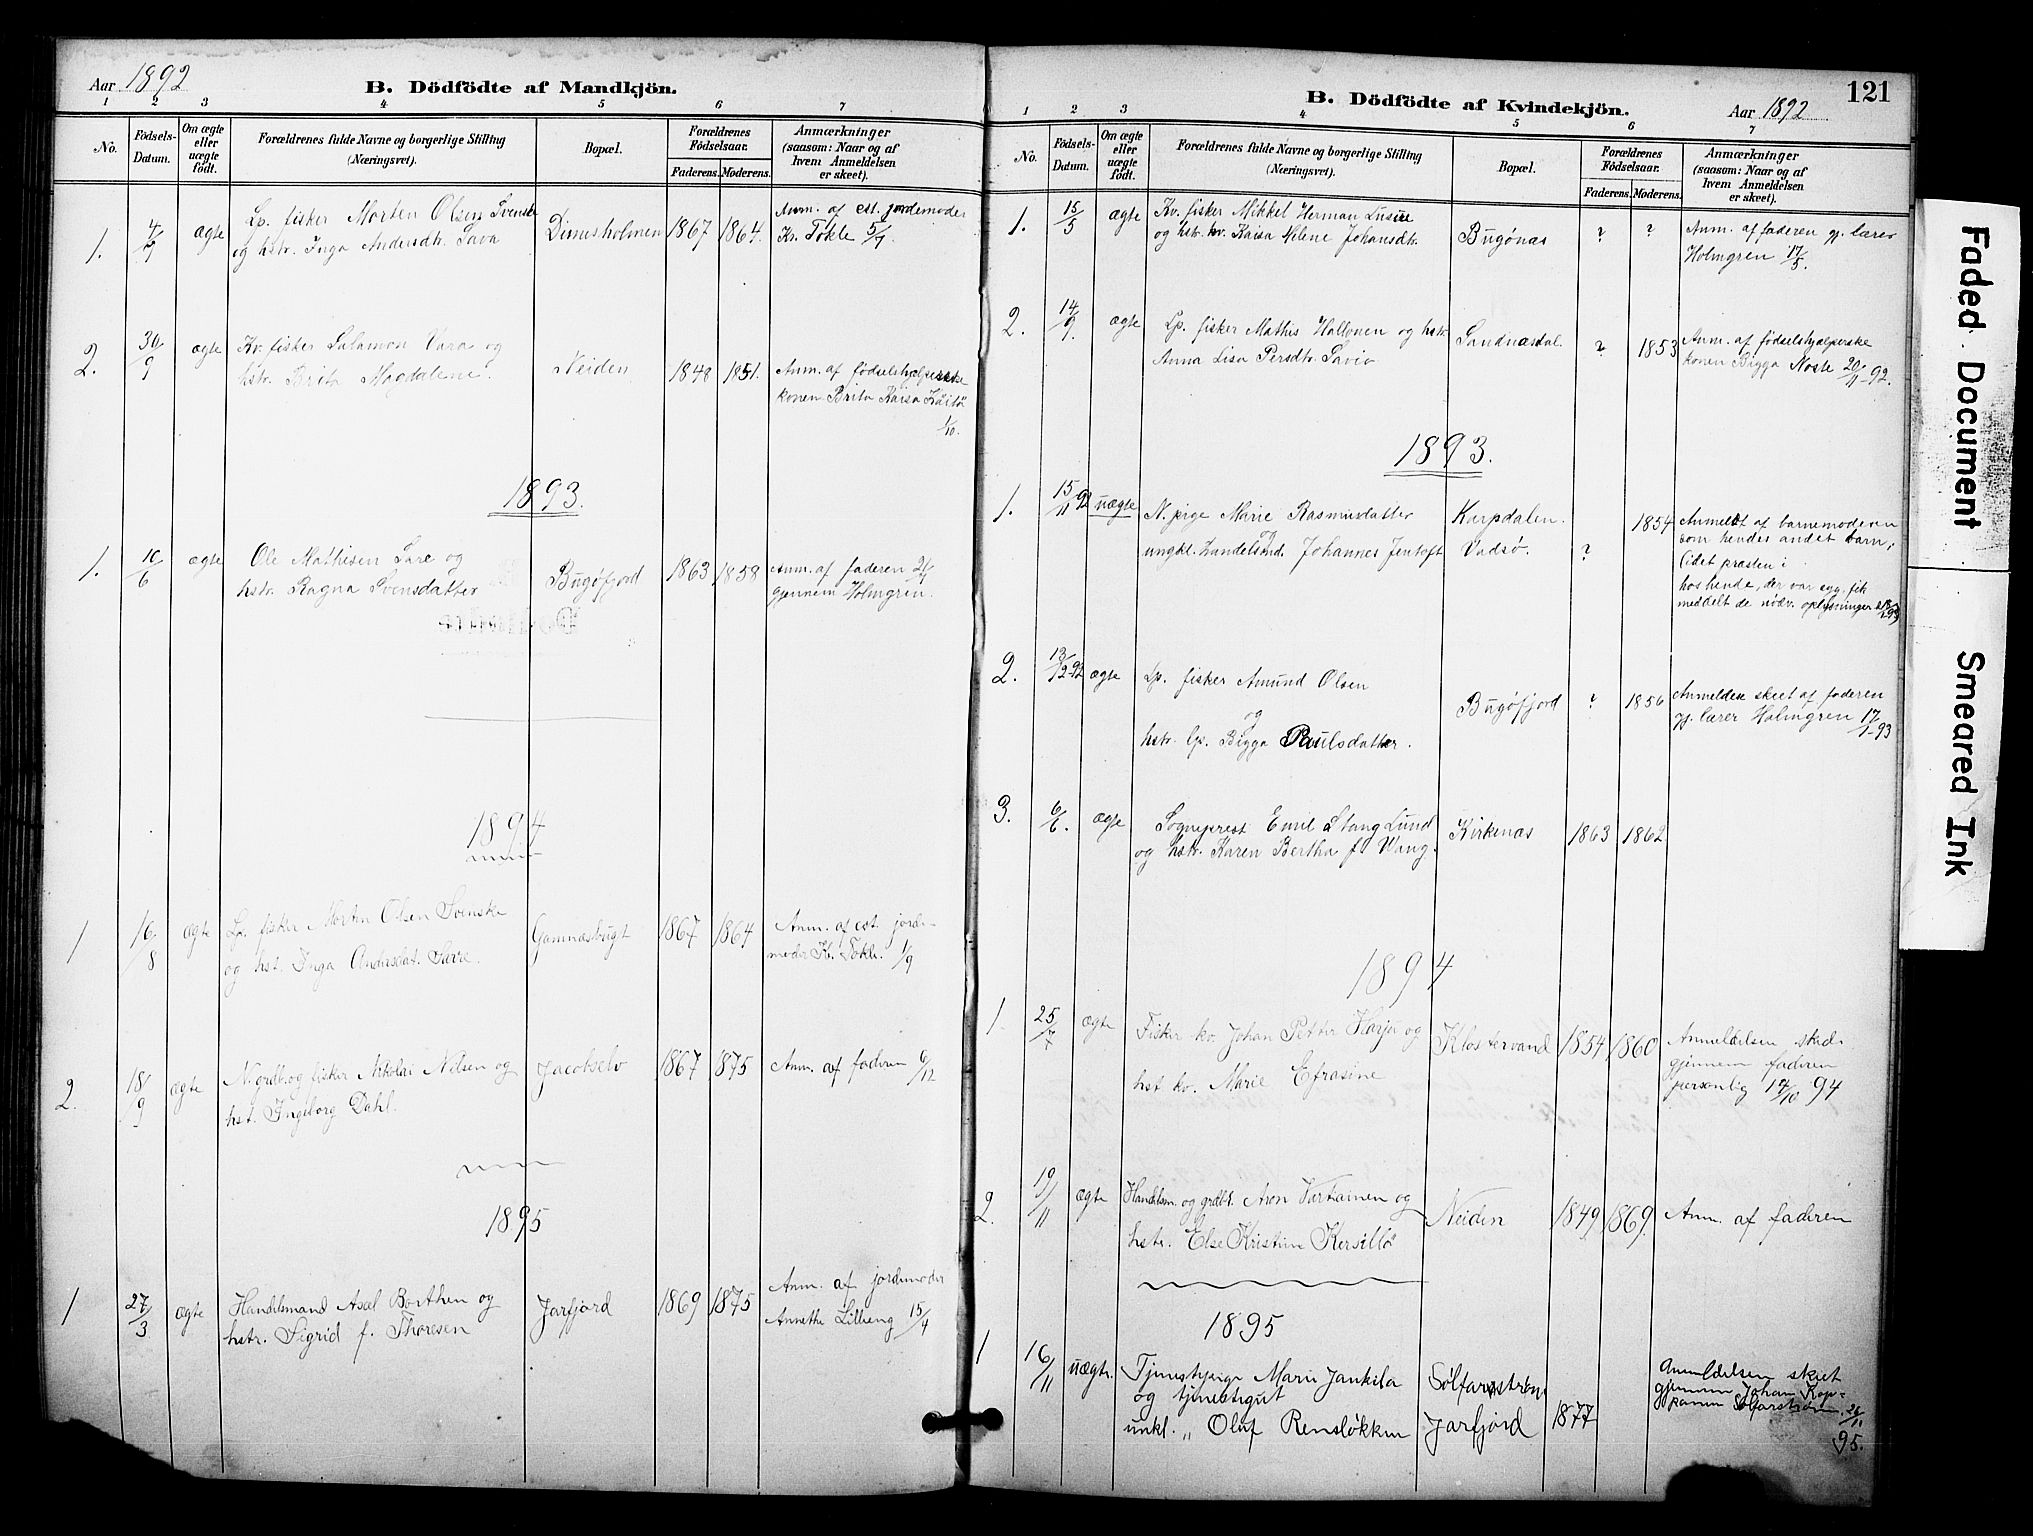 Aar 1892
B. Dödfödte af Mandkjön.
1 2 3 4 5 6 7
No.
Födsels-
Datum.
Om ægte
eller
uægte
födt.
Forældrenes fulde Navne og borgerlige Stilling
(Næringsvei).
Bopæl.
Forældrenes
Födselsaar.
Faderens. Moderens.
Anmærkninger
(saasom: Naar og af
hvem Anmeldelsen
er skeet).
1. 4/7 ægte Lp. fisker Morten Olsen Svenske
og hstr. Inga Andersdtr. Sava
1867 1864.
Anm. af est. jordemoder
Kr. Tokle 5/7
2. 30/9 ægte Kv. fisker Salamon Vara og
hstr. Brita Magdalene.
Neiden 1848 1851.
Anm. af födselshjælperske
konen Brita Kaisa
1/10.
1893.
1. 10/6 ægte Ole Mathisen Sare og
hstr. Ragna Svensdatter
Bugöfjord 1863 1858
Anm. af faderen
gjennem Holmgren.
1894
1 16/8 ægte Lp. fisker Morten Olsen Svenske
og hst. Inga Andersdat. Sarre.
Gamnæsbugt 1867 1864
Anm. af est. jorde-
moder Kr. Tokle 1/9
2. 18/9 ægte N. grdb. og fisker Nikolai Nilsen og
hst. Ingeborg Dahl.
Jacobselv 1867 1875 Anm. af faderen 6/12
1895
1 27/3 ægte Handelsmand Axel Borthen og
hstr. Sigrid f. Thoresen
Jarfjord 1869 1875
Anm. af jordemoder
Annethe Lilleeng 15/4
B. Dödfödte af Kvindekjön.
Aar 1892
121
1 2 3 4 5 6 7
No.
Födsels-
Datum.
Om ægte
eller
uægte
födt.
Forældrenes fulde Navne og borgerlige Stilling
(Næringsvei).
Bopæl.
Forældrenes
Födselsaar.
Faderens. Moderens.
Anmærkninger
(saasom: Naar og af
hvem Anmeldelsen
er skeet).
1. 15/5 ægte Kv. fisker Mikkel Herman
og hstr. kv. Kaisa Helene Johansdtr.
Bugönæs ? ?
Anm. af faderen gj. lærer
Holmgren 17/5.
2. 14/9. ægte Lp. fisker Mathis Hallonen og hstr.
Anna Lisa Persdtr. Savio
Sandnæsdal. ? 1853
Anm. af födselshjælperske
konen Bigga Noste 20/11-92.
1893.
1. 15/11 92 uægte N. pige Marie Rasmusdatter
og
ungkl. handelsmd. Johannes Jentoft
Karpdalen.
Vadsö. ? 1854
Anmeldt af barnemoderen
som hendes andet barn,
idet præsten i
hos hende, der var syg, fik
meddelt de nödv. oplysninger
2. 13/12-92 ægte Lp. fisker Amund Olsen
og
hstr. lp. Bigga Paulsdatter.
Bugöfjord ? 1856
Anmeldelse skeet af faderen
gj. lærer Holmgren 17/1-93
3. 6/6. ægte Sogneprest Emil Stang Lund
og hstr. Karen Bertha f. Wang.
Kirkenæs 1863 1862
1894
1. 25/7 ægte Fisker kv. Johan Petter Harju og
hst kv. Marie Efrasine
Klostervand 1854 1860
Anmeldelsen skede
gjennem faderen
personlig 14/10 94
2. 19/11 ægte Handelsm. og grdbr. Aron Vartainen og
hstr. Else Kristine Kersillö
Neiden 1849 1869. Anm. af faderen
1895
1 16/11 uægte. Tjenestepige Marie Jankila
og tjenestegut
unkl. „ Oluf Rensløkken
Sølfarstrøm
Jarfjord 1877
Anmeldelsen skeet
gjennem Johan Kop-
panen Sölfarström. 26/11
95.
Faded Document
Smeared Ink